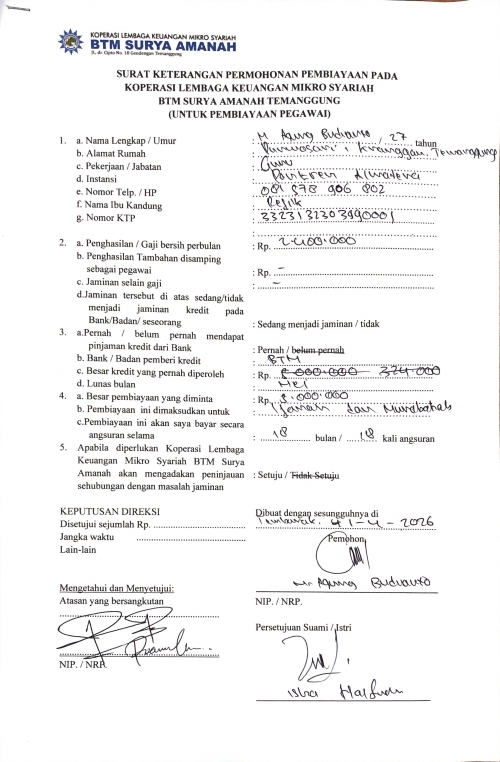 KOPERASI LEMBAGA KEUANGAN MIKRO SYARIAH
BTM SURYA AMANAH
Jl. dr. Cipto No. 18 Gendengan Temanggung
SURAT KETERANGAN PERMOHONAN PEMBIAYAAN PADA
KOPERASI LEMBAGA KEUANGAN MIKRO SYARIAH
BTM SURYA AMANAH TEMANGGUNG
(UNTUK PEMBIAYAAN PEGAWAI)
1. a. Nama Lengkap / Umur : M Agung Budianto / 27 tahun
b. Alamat Rumah : Kranggan, Temanggung
c. Pekerjaan / Jabatan : Guru
d. Instansi :
e. Nomor Telp. / HP : 081 578 906 802
f. Nama Ibu Kandung :
g. Nomor KTP : 3323132303990001
2. a. Penghasilan / Gaji bersih perbulan : Rp. 2.400.000
b. Penghasilan Tambahan disamping
sebagai pegawai : Rp. -
c. Jaminan selain gaji : -
d.Jaminan tersebut di atas sedang/tidak
menjadi jaminan kredit pada
Bank/Badan/ seseorang : Sedang menjadi jaminan / tidak
3. a.Pernah / belum pernah mendapat
pinjaman kredit dari Bank : Pernah / belum pernah
b. Bank / Badan pemberi kredit : BTM
c. Besar kredit yang pernah diperoleh : Rp.
d. Lunas bulan : Mei
4. a. Besar pembiayaan yang diminta : Rp. 5.000.000
b. Pembiayaan ini dimaksudkan untuk : Ijarah dan Murabahah
c.Pembiayaan ini akan saya bayar secara
angsuran selama : 18 bulan / 18 kali angsuran
5. Apabila diperlukan Koperasi Lembaga
Keuangan Mikro Syariah BTM Surya
Amanah akan mengadakan peninjauan : Setuju / Tidak Setuju
sehubungan dengan masalah jaminan
KEPUTUSAN DIREKSI
Disetujui sejumlah Rp.
Jangka waktu
Lain-lain
Dibuat dengan sesungguhnya di
-4-2026
Pemohon,
M Agung Budianto
NIP. / NRP.
Mengetahui dan Menyetujui:
Atasan yang bersangkutan
NIP. / NRP.
Persetujuan Suami / Istri